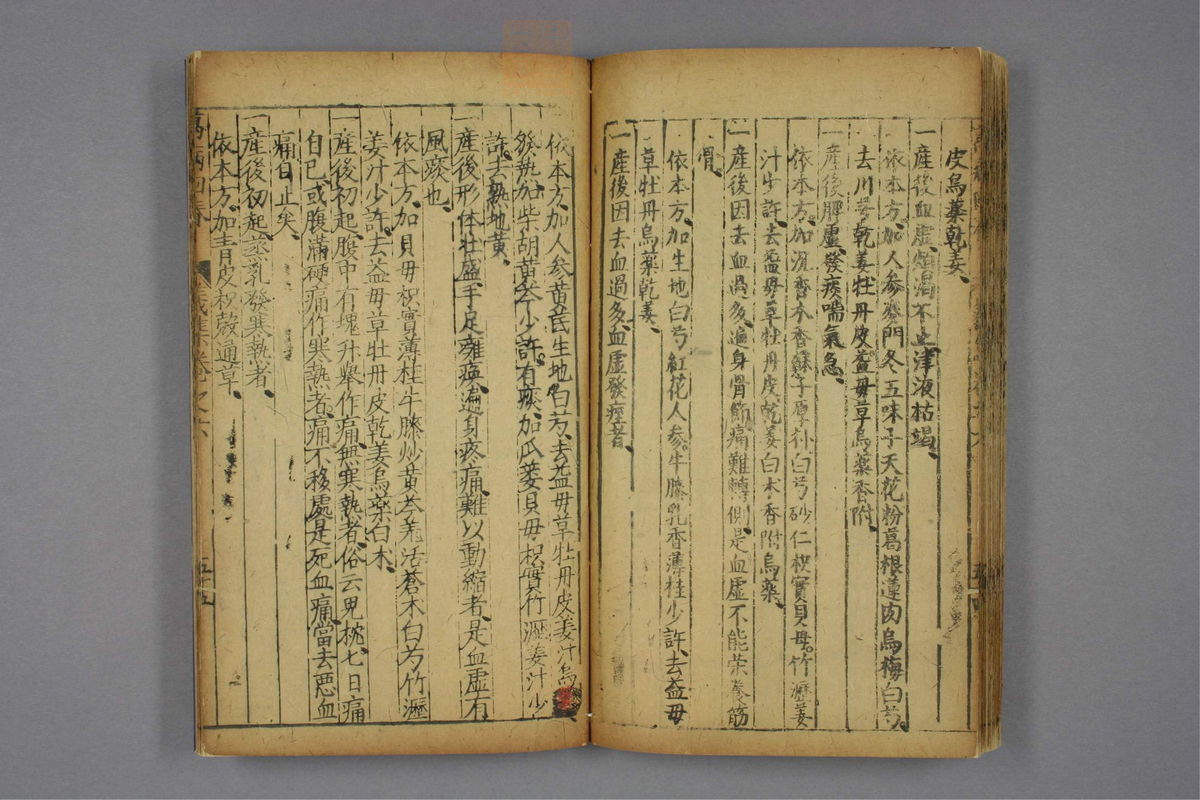 皮烏藥乾姜
一產後血虛煩渴不止津液枯竭
依本方加人參麥門冬五味子天花粉葛根蓮肉烏梅白芍
去川芎乾姜牡丹皮益毋草烏藥香附
一產後脾虛發痰喘氣急
依本方加沉香木香蘇子厚朴白芍砂仁枳實貝母竹瀝姜
汁少許去益毋草牡丹皮乾姜白术香附烏藥
一產後因去血過多遍身骨節痛難轉側是血虛不能荣養筋
骨
依本方加生地白芍紅花人參牛膝乳香薄桂少許去益毋
草牡丹烏藥乾姜
一產後因去血過多血虛發痓者
依本方加人參黃茋生地白芍去益毋草牡丹皮姜汁烏
發熱加柴胡黃芩少許有痰加瓜蔞貝毋枳實竹瀝姜汁少
許去熟地黃
一產後形体壯盛手足癱瘓遍身疼痛難以動縮者是血虛有
風痰也
依本方加貝毋枳實薄桂牛膝炒黃芩羌活蒼术白芍竹瀝
姜汁少許去益毋草牡丹皮乾姜烏藥白术
一產後初起腹中有塊升舉作痛無寒熱者俗云兒枕七日痛
自已或腹滿硬痛作寒熱者痛不移處是死血痛當去惡血
痛自止矣
一產後初起蒸乳發寒熱者
依本方加青皮枳殼通草
萬病回春
卷之六
五十五